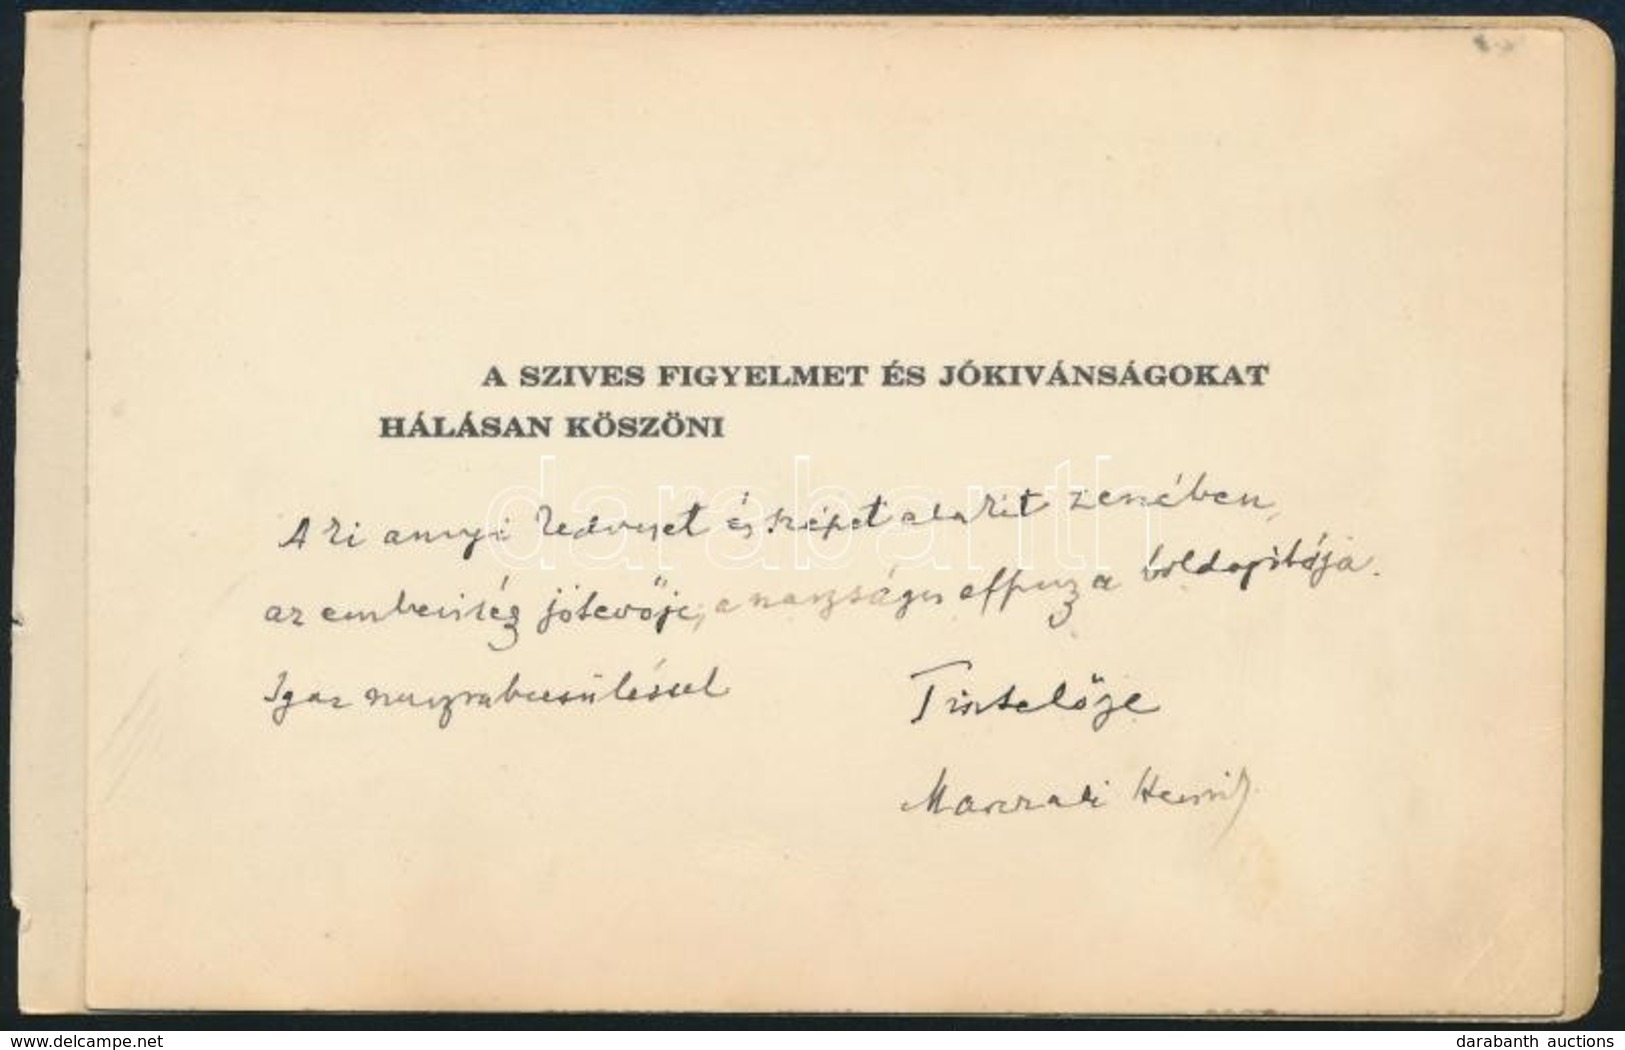 A SZIVES FIGYELMET ÉS JÓKIVÁNSÁGOKAT
HÁLÁSAN KÖSZÖNI
A ki annyi kedveset és szépet alakít zenében,
az emberiség jótevője, a magányos boldogítója.
Igaz nagyrabecsüléssel Tisztelője
Marczali Henrik
darabanth
www.delcampe.net
darabanth auctions